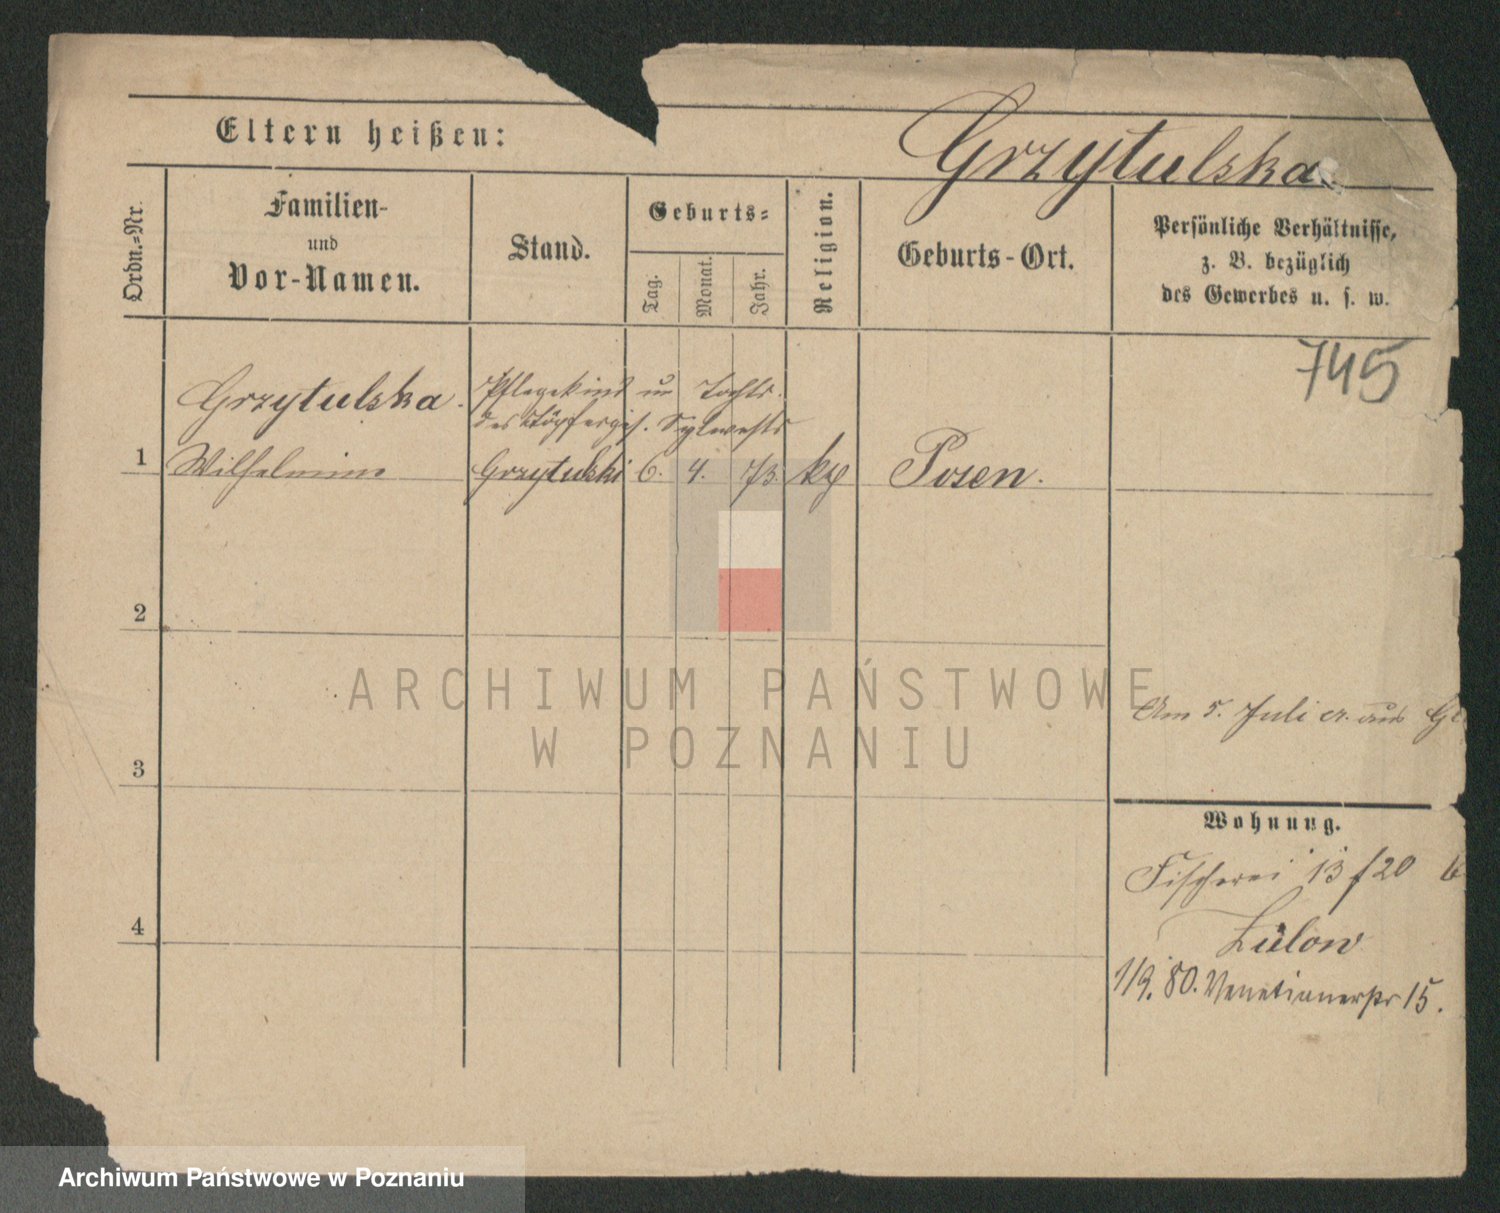 Eltern heißen:
Grzytulska.
Ordn.=Nr.
Familien-
und
Vor-Namen.
Stand.
Geburts=
Tag.
Monat.
Jahr.
Religion.
Geburts-Ort.
Persönliche Verhältnisse,
z. B. bezüglich
des Gewerbes u. s. w.
745
Grzytulska. Pflegekind u Tochtr.
des Töpferges. Sylwestr
1 Wilhelmine Grzytulski 6. 4. 73. Posen.
2
ARCHIWUM PAŃSTWOWE
W POZNANIU
Am 5. Juli cr. aus
3
Wohnung.
Fischerei 13 f 20
Lülow
4
1/9. 80. Venetianerstr 15.
Archiwum Państwowe w Poznaniu